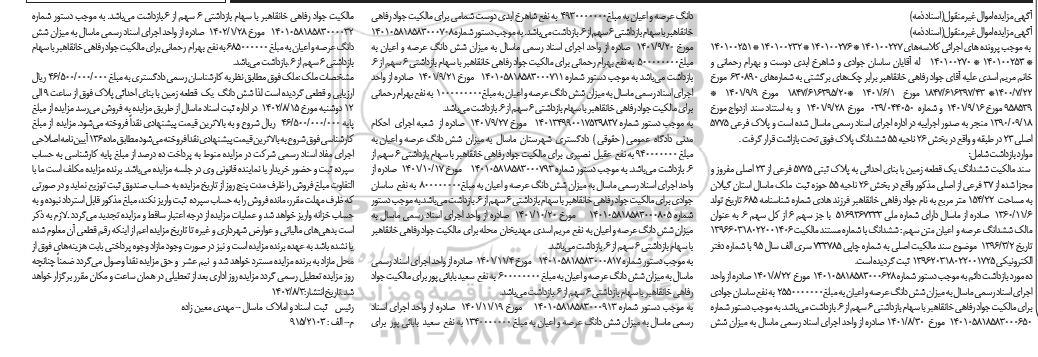 آگهی مزایده اموال غیر منقول (اسناد ذمه)
آگهی مزایده اموال غیر منقول (اسناد ذمه)
به موجب پرونده های اجرائی کلاسه‌های ۱۴۰۱۰۰۲۲۷ * ۱۴۰۱۰۰۲۷۶ * ۱۴۰۱۰۰۲۳۲ * ۱۴۰۱۰۰۲۵۱
* ۱۴۰۱۰۰۲۵۳ * ۱۴۰۱۰۰۲۷۰ له آقایان ساسان جوادی و شاهرخ ایدی دوست و بهرام رحمانی و
خانم مریم اسدی علیه آقای جواد رفاهی خانقاهبر برابر چک‌های برگشتی به شماره‌های ۶۳۰۸۹۰ مورخ
و مورخ ۱۴۰۱/۹/۱۶ و شماره ۰۳۹/۰۴۴۰۵۰ مورخ ۱۴۰۱/۹/۲۸ و به استناد سند ازدواج مورخ
۱۳۹۰/۰۹/۱۸ منجر به صدور اجراییه در اداره اجرای اسناد رسمی ماسال شده است و پلاک فرعی ۵۷۷۵
اصلی ۲۳ در طبقه و واقع در بخش ۲۶ ناحیه ۵۵ ششدانگ پلاک فوق تحت بازداشت قرار گرفت.
موارد بازداشت شامل:
سند مالکیت ششدانگ یک قطعه زمین با بنای احداثی به پلاک ثبتی ۵۷۷۵ فرعی از ۲۳ اصلی مفروز و
مجزا شده از ۳۷ فرعی از اصلی مذکور واقع در بخش ۲۶ ناحیه ۵۵ حوزه ثبت ملک ماسال استان گیلان
به مساحت ۱۵۴/۲۲ متر مربع به نام جواد رفاهی خانقاهبر فرزند هادی شماره شناسنامه ۶۸۵ تاریخ تولد
۱۳۶۰/۱۱/۶ صادره از ماسال دارای شماره ملی ۵۱۶۹۳۶۷۳۳۳ با جز سهم ۶ از کل سهم ۶ به عنوان
مالک ششدانگ عرصه و اعیان متن سهم: ششدانگ با شماره مستند مالکیت ۱۳۹۶۶۰۳۱۸۰۲۲۰۰۱۴۰۶
تاریخ ۱۳۹۶/۳/۲ موضوع سند مالکیت اصلی به شماره چاپی ۷۳۳۷۸۵ سری الف سال ۹۵ با شماره دفتر
الکترونیکی ۱۳۹۶۲۰۳۱۸۰۲۲۰۰۱۷۲۵ ثبت گردیده است.
ده مورد بازداشت دائم به موجب دستور شماره ۱۴۰۱۰۵۸۱۸۵۸۳۰۰۰۶۲۸ مورخ ۱۴۰۱/۸/۲۲ صادره از واحد
اجرای اسناد رسمی ماسال به میزان شش دانگ عرصه و اعیان به مبلغ ۲۵۵۰۰۰۰۰۰۰ به نفع ساسان جوادی
برای مالکیت جواد رفاهی خانقاهبر با سهام بازداشتی ۶ سهم از ۶ بازداشت می‌باشد. به موجب دستور شماره
۱۴۰۱۰۵۸۱۸۵۸۳۰۰۰۶۵۰ مورخ ۱۴۰۱/۸/۳۰ صادره از واحد اجرای اسناد رسمی ماسال به میزان شش
دانگ عرصه و اعیان به مبلغ ۴۹۳۰۰۰۰۰۰۰ به نفع شاهرخ ایدی دوست شمامی برای مالکیت جواد رفاهی
خانقاهبر با سهام بازداشتی ۶ سهم از ۶ بازداشت می‌باشد. به موجب دستور شماره ۱۴۰۱۰۵۸۱۸۵۸۳۰۰۰۷۰۸
مورخ ۱۴۰۱/۹/۲۰ صادره از واحد اجرای اسناد رسمی ماسال به میزان شش دانگ عرصه و اعیان به
مبلغ ۵۰۰۰۰۰۰۰۰ به نفع بهرام رحمانی برای مالکیت جواد رفاهی خانقاهبر با سهام بازداشتی ۶ سهم از ۶
بازداشت می‌باشد به موجب دستور شماره ۱۴۰۱۰۵۸۱۸۵۸۳۰۰۰۷۱۱ مورخ ۱۴۰۱/۹/۲۱ صادره از واحد
اجرای اسناد رسمی ماسال به میزان شش دانگ عرصه و اعیان به مبلغ ۱۰۰۰۰۰۰۰۰۰ به نفع بهرام رحمانی
برای مالکیت جواد رفاهی خانقاهبر با سهام بازداشتی ۶ سهم از ۶ بازداشت می‌باشد.
به موجب دستور شماره ۱۴۰۱۳۴۹۹۰۰۱۷۵۳۹۸۳۷ مورخ ۱۴۰۱/۹/۲۷ صادره از شعبه اجرای احکام
مدنی دادگاه عمومی (حقوقی) دادگستری شهرستان ماسال به میزان شش دانگ عرصه و اعیان به
مبلغ ۹۴۰۰۰۰۰۰۰ به نفع عقیل نصیری برای مالکیت جواد رفاهی خانقاهبر با سهام بازداشتی ۶ سهم از
۶ بازداشت می‌باشد. به موجب دستور شماره ۱۴۰۱۰۵۸۱۸۵۸۳۰۰۰۷۹۳ مورخ ۱۴۰۱/۱۰/۱۷ صادره از
واحد اجرای اسناد رسمی ماسال به میزان شش دانگ عرصه و اعیان به مبلغ ۸۰۰۰۰۰۰۰۰ به نفع ساسان
جوادی برای مالکیت جواد رفاهی خانقاهبر با سهام بازداشتی ۶ سهم از ۶ بازداشت می‌باشد به موجب دستور
شماره ۱۴۰۱۰۵۸۱۸۵۸۳۰۰۰۸۰۵ مورخ ۱۴۰۱/۱۰/۲۰ صادره از واحد اجرای اسناد رسمی ماسال به
میزان شش دانگ عرصه و اعیان به نفع مریم اسدی مهدیخان محله برای مالکیت جواد رفاهی خانقاهبر
با سهام بازداشتی ۶ سهم از ۶ بازداشت می‌باشد
به موجب دستور شماره ۱۴۰۱۰۵۸۱۸۵۸۳۰۰۰۸۱۷ مورخ ۱۴۰۱/۱۱/۴ صادره از واحد اجرای اسناد رسمی
ماسال به میزان شش دانگ عرصه و اعیان به مبلغ ۶۰۰۰۰۰۰۰۰ به نفع سعید بابائی پور برای مالکیت جواد
رفاهی خانقاهبر با سهام بازداشتی ۶ سهم از ۶ بازداشت می‌باشد
به موجب دستور شماره ۱۴۰۱۰۵۸۱۸۵۸۳۰۰۰۹۱۳ مورخ ۱۴۰۱/۱۱/۱۹ صادره از واحد اجرای اسناد
رسمی ماسال به میزان شش دانگ عرصه و اعیان به مبلغ ۱۳۴۰۰۰۰۰۰۰ به نفع سعید بابائی پور برای
مالکیت جواد رفاهی خانقاهبر با سهام بازداشتی ۶ سهم از ۶ بازداشت می‌باشد. به موجب دستور شماره
۱۴۰۲۱۰۵۸۱۸۵۸۳۰۰۰۰۳۲ مورخ ۱۴۰۲/۱/۲۸ صادره از واحد اجرای اسناد رسمی ماسال به میزان شش
دانگ عرصه و اعیان به مبلغ ۶۸۵۰۰۰۰۰۰ به نفع بهرام رحمانی برای مالکیت جواد رفاهی خانقاهبر با سهام
بازداشتی ۶ سهم از ۶ بازداشت می‌باشد.
مشخصات ملک: ملک فوق مطابق نظریه کارشناسان رسمی دادگستری به مبلغ ۴۶/۵۰۰/۰۰۰/۰۰۰ ریال
ارزیابی و قطعی گردیده است لذا شش دانگ یک قطعه زمین با بنای احداثی پلاک فوق از ساعت ۹ الی
۱۲ دوشنبه مورخ ۱۴۰۲/۸/۱۵ در اداره ثبت اسناد ماسال از طریق مزایده به فروش می‌رسد مزایده از مبلغ
پایه ۴۶/۵۰۰/۰۰۰/۰۰۰ ریال شروع و به بالاترین قیمت پیشنهادی نقداً فروخته می‌شود. مزایده از مبلغ
کارشناسی فوق شروع به بالاترین قیمت پیشنهادی نقداً فروخته می‌شود مطابق ماده ۱۳۶ آیین نامه اصلاحی
اجرای مفاد اسناد رسمی شرکت در مزایده منوط به پرداخت ده درصد از مبلغ پایه کارشناسی به حساب
سپرده ثبت و حضور خریدار یا نماینده قانونی وی در جلسه مزایده می‌باشد. برنده مزایده مکلف است ما به
التفاوت مبلغ فروش را ظرف مدت پنج روز از تاریخ مزایده به حساب صندوق ثبت تودیع نماید و در صورتی
که ظرف مهلت مقرر، مانده فروش را به حساب سپرده ثبت واریز نکند، مبلغ مذکور قابل استرداد نبوده و به
حساب خزانه واریز خواهد شد و عملیات مزایده از درجه اعتبار ساقط و مزایده تجدید می‌گردد. لازم به ذکر
است بدهی‌های مالیاتی و عوارض شهرداری و غیره تا تاریخ مزایده اعم از اینکه رقم قطعی آن معلوم شده
یا نشده باشد به عهده برنده مزایده است و نیز در صورت وجود مازاد وجوه پرداختی بابت هزینه‌های فوق از
محل مازاد به برنده مزایده مسترد خواهد شد و نیم عشر و حق مزایده نقدا وصول می‌گردد ضمناً چنانچه
روز مزایده تعطیل رسمی گردد مزایده روز اداری بعد از تعطیلی در همان ساعت و مکان مقرر برگزار خواهد
شد تاریخ انتشار: ۱۴۰۲/۸/۳
رئیس ثبت اسناد و املاک ماسال - مهدی معین زاده
م - الف: ۹۱۵/۲۱۰۳
۰۲۱-۸۸۳۴۹۶۷۰-۵